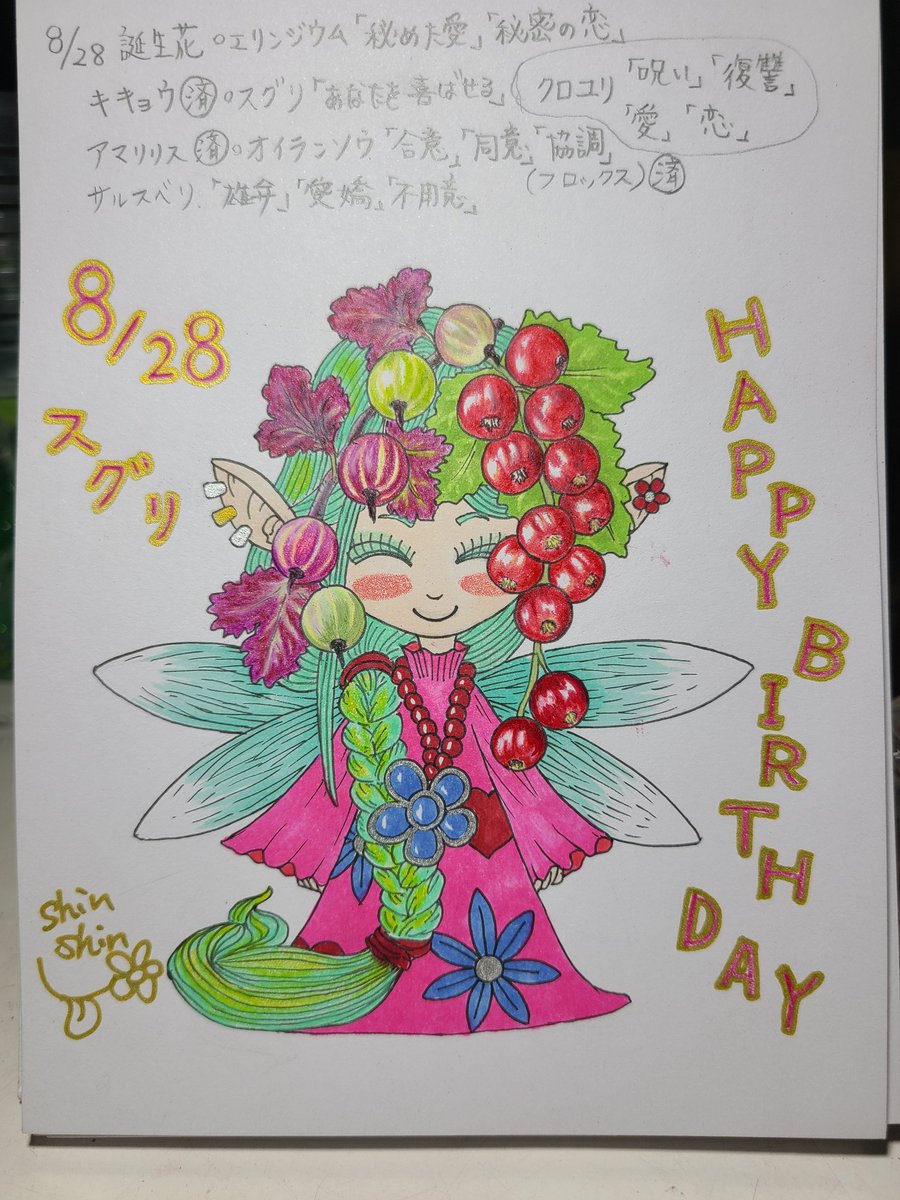 8/28 誕生花。エリンジウム「秘めた愛」「秘密の恋」
キキョウ㊮。スグリ「あなたを喜ばせる」
クロユリ「呪い」「復讐」
「愛」「恋」
アマリリス㊮。オイランソウ「合意」「同意」「協調」
(フロックス)㊮
サルスベリ「雄弁」「愛嬌」「不用意」
8/28
スグリ
HAPPY
BIRTH
DAY
shin
shin